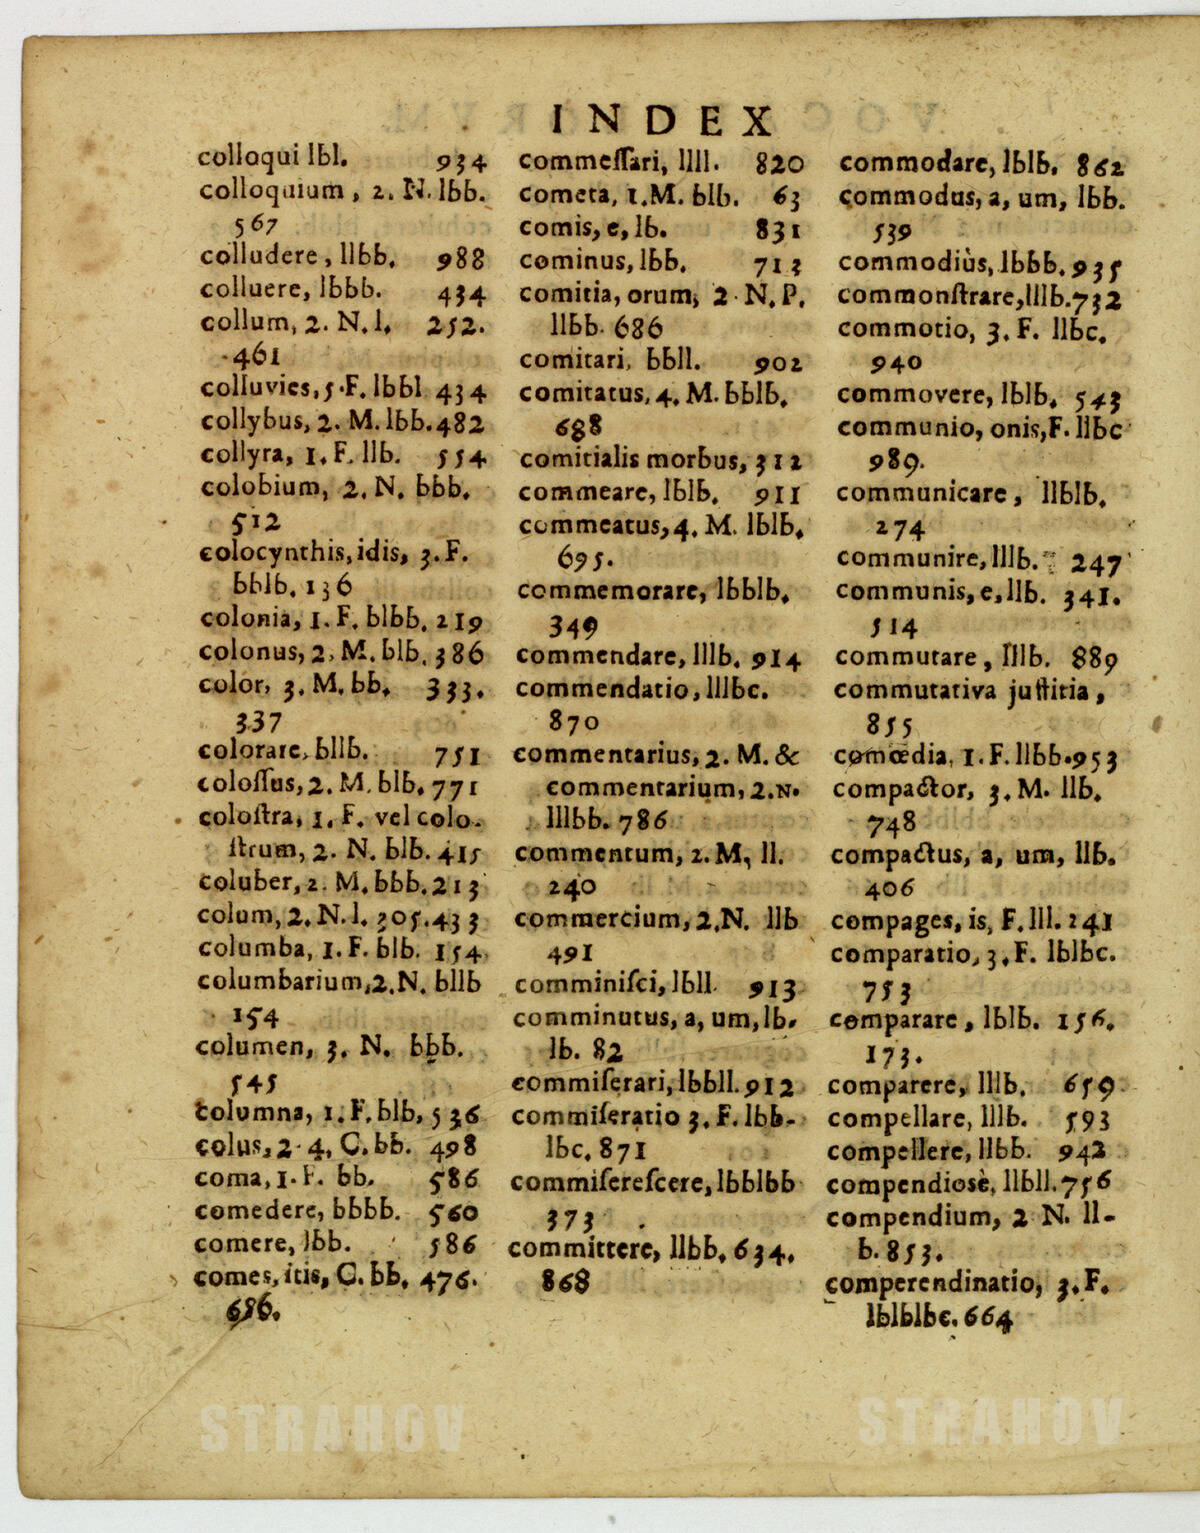 INDEX
colloqui lbl. 934
colloquium, 2. N. lbb.
567
colludere, llbb. 988
colluere, lbbb. 434
collum, 2. N. l. 252.
461
colluvies, 5. F. lbbl 434
collybus, 2. M. lbb. 482
collyra, 1. F. llb. 554
colobium, 2. N. bbb.
512
colocynthis, idis, 3. F.
bblb. 136
colonia, 1. F. blbb. 219
colonus, 2. M. blb. 386
color, 3. M. bb. 333.
337
colorare, bllb. 751
coloſſus, 2. M. blb. 771
coloſtra, 1. F. vel colo-
ſtrum, 2. N. blb. 415
coluber, 2. M. bbb. 213
colum, 2. N. l. 305. 433
columba, 1. F. blb. 154
columbarium, 2. N. bllb
154
columen, 3. N. bbb.
545
columna, 1. F. blb, 536
colus, 2. 4. C. bb. 498
coma, 1. F. bb. 586
comedere, bbbb. 560
comere, lbb. 586
comes, itis, C. bb. 476.
686.
commeſſari, llll. 820
cometa, 1. M. blb. 63
comis, e, lb. 831
cominus, lbb. 713
comitia, orum, 2. N. P.
llbb. 686
comitari, bbll. 902
comitatus, 4. M. bblb.
688
comitialis morbus, 312
commeare, lblb. 911
commeatus, 4. M. lblb.
695.
commemorare, lbblb.
349
commendare, lllb. 914
commendatio, lllbc.
870
commentarius, 2. M. &
commentarium, 2. N.
lllbb. 786
commentum, 2. M, ll.
240
commercium, 2. N. llb
491
comminiſci, lbll. 913
comminutus, a, um, lb-
lb. 82
commiſerari, lbbll. 912
commiſeratio 3. F. lbb-
lbc. 871
commiſereſcere, lbblbb
373
committere, llbb. 634.
868
commodare, lblb. 862
commodus, a, um, lbb.
539
commodiùs, lbbb. 935
commonſtrare, lllb. 732
commotio, 3. F. llbc.
940
commovere, lblb. 543
communio, onis, F. llbc
989.
communicare, llblb.
274
communire, lllb. 247
communis, e, llb. 341.
514
commutare, lllb. 889
commutativa juſtitia,
855
comœdia, 1. F. llbb. 953
compactor, 3. M. llb.
748
compactus, a, um, llb.
406
compages, is, F. lll. 241
comparatio, 3. F. lblbc.
753
comparare, lblb. 156.
173.
comparere, lllb. 659
compellare, lllb. 593
compellere, llbb. 942
compendiosè, llbll. 756
compendium, 2 N. ll-
b. 853.
comperendinatio, 3. F.
lblblbc. 664
STRAHOV STRAHOV